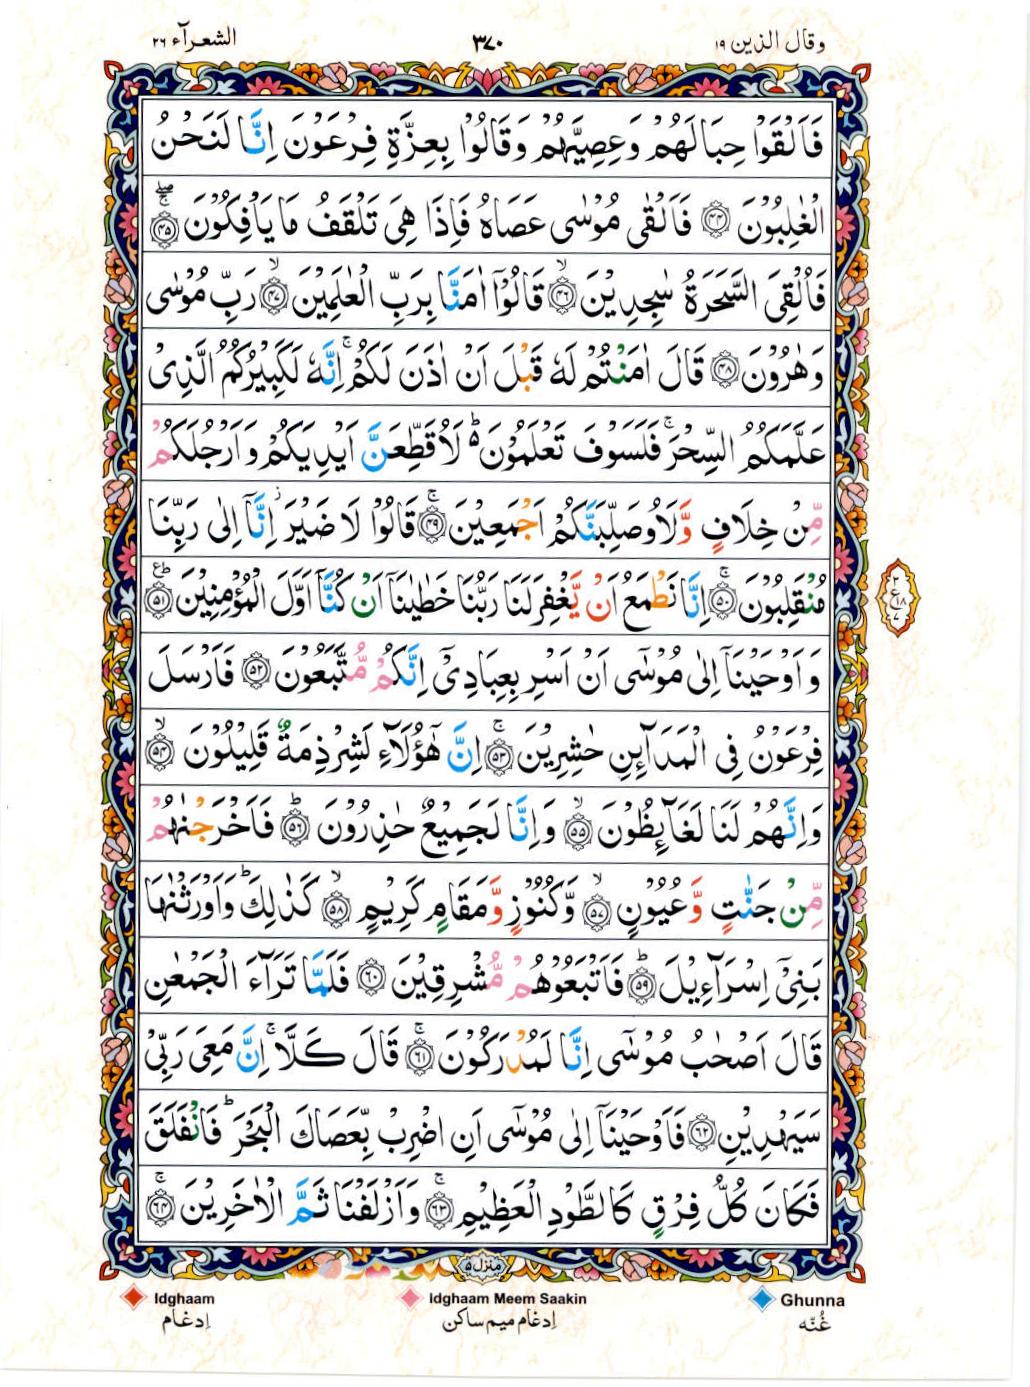 وقال الذين ١٩
٣٧٠
الشعرآء ٢٦
فَاَلْقَوْا حِبَالَهُمْ وَعِصِيَّهُمْ وَقَالُوْا بِعِزَّةِ فِرْعَوْنَ اِنَّا لَنَحْنُ
الْغٰلِبُوْنَ ﴿۴۴﴾ فَاَلْقٰى مُوْسٰى عَصَاهُ فَاِذَا هِىَ تَلْقَفُ مَا يَاْفِكُوْنَ ۖۚ﴿۴۵﴾
فَاُلْقِىَ السَّحَرَةُ سٰجِدِيْنَ ۙ﴿۴۶﴾ قَالُوْۤا اٰمَنَّا بِرَبِّ الْعٰلَمِيْنَ ۙ﴿۴۷﴾ رَبِّ مُوْسٰى
وَهٰرُوْنَ ﴿۴۸﴾ قَالَ اٰمَنْتُمْ لَهٗ قَبْلَ اَنْ اٰذَنَ لَكُمْ ۚ اِنَّهٗ لَكَبِيْرُكُمُ الَّذِىْ
عَلَّمَكُمُ السِّحْرَ ۚ فَلَسَوْفَ تَعْلَمُوْنَ ؕ۬ لَاُقَطِّعَنَّ اَيْدِيَكُمْ وَاَرْجُلَكُمْ
مِّنْ خِلَافٍ وَّلَاُوصَلِّبَنَّكُمْ اَجْمَعِيْنَ ۚ﴿۴۹﴾ قَالُوْا لَا ضَيْرَ ۡ اِنَّاۤ اِلٰى رَبِّنَا
مُنْقَلِبُوْنَ ۚ﴿۵۰﴾ اِنَّا نَطْمَعُ اَنْ يَّغْفِرَ لَنَا رَبُّنَا خَطٰيٰنَاۤ اَنْ كُنَّاۤ اَوَّلَ الْمُؤْمِنِيْنَ ؕ﴿۵۱﴾ ع
وَاَوْحَيْنَاۤ اِلٰى مُوْسٰٓى اَنْ اَسْرِ بِعِبَادِىْۤ اِنَّكُمْ مُّتَّبَعُوْنَ ﴿۵۲﴾ فَاَرْسَلَ
فِرْعَوْنُ فِى الْمَدَآئِنِ حٰشِرِيْنَ ۚ﴿۵۳﴾ اِنَّ هٰٓؤُلَآءِ لَشِرْذِمَةٌ قَلِيْلُوْنَ ۙ﴿۵۴﴾
وَاِنَّهُمْ لَنَا لَغَآئِظُوْنَ ۙ﴿۵۵﴾ وَاِنَّا لَجَمِيْعٌ حٰذِرُوْنَ ؕ﴿۵۶﴾ فَاَخْرَجْنٰهُمْ
مِّنْ جَنّٰتٍ وَّعُيُوْنٍ ۙ﴿۵۷﴾ وَّكُنُوْزٍ وَّمَقَامٍ كَرِيْمٍ ۙ﴿۵۸﴾ كَذٰلِكَ ؕ وَاَوْرَثْنٰهَا
بَنِىْۤ اِسْرَآءِيْلَ ؕ﴿۵۹﴾ فَاَتْبَعُوْهُمْ مُّشْرِقِيْنَ ﴿۶۰﴾ فَلَمَّا تَرَآءَ الْجَمْعٰنِ
قَالَ اَصْحٰبُ مُوْسٰٓى اِنَّا لَمُدْرَكُوْنَ ۚ﴿۶۱﴾ قَالَ كَلَّا ۚ اِنَّ مَعِىَ رَبِّىْ
سَيَهْدِيْنِ ﴿۶۲﴾ فَاَوْحَيْنَاۤ اِلٰى مُوْسٰٓى اَنِ اضْرِبْ بِّعَصَاكَ الْبَحْرَ ؕ فَانْفَلَقَ
فَكَانَ كُلُّ فِرْقٍ كَالطَّوْدِ الْعَظِيْمِ ۚ﴿۶۳﴾ وَاَزْلَفْنَا ثَمَّ الْاٰخَرِيْنَ ۚ﴿۶۴﴾
منزل ۵
Idghaam
Idghaam Meem Saakin
Ghunna
اِدغام
اِدغام ميم ساكن
غُنّه